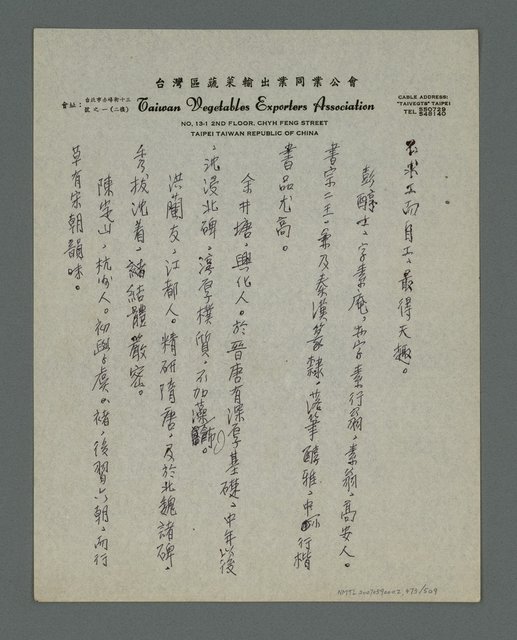 台灣區蔬菜輸出業同業公會
會址：台北市赤峰街十三號之一(二樓)
Taiwan Vegetables Exporters Association
CABLE ADDRESS:
"TAIVEGTS" TAIPEI
TEL 550729
548140
NO. 13-1 2ND FLOOR, CHYH FENG STREET
TAIPEI TAIWAN REPUBLIC OF CHINA
不求工而自工，最得天趣。
彭醇士，字素庵，亦字素行翁，素翁，高安人。
書宗二王，兼及秦漢篆隸，落筆醇雅，中行楷
書品尤高。
余井塘，興化人。於晉唐有深厚基礎，中年以後
，沈浸北碑，淳厚樸質，不加藻飾。
洪蘭友，江都人。精研隋唐，及於北魏諸碑，
秀拔沈着，緒結體嚴密。
陳定山，杭州人。初學虞、褚，後習六朝，而行
草有宋朝韻味。
NMTL20070590002, 473/509